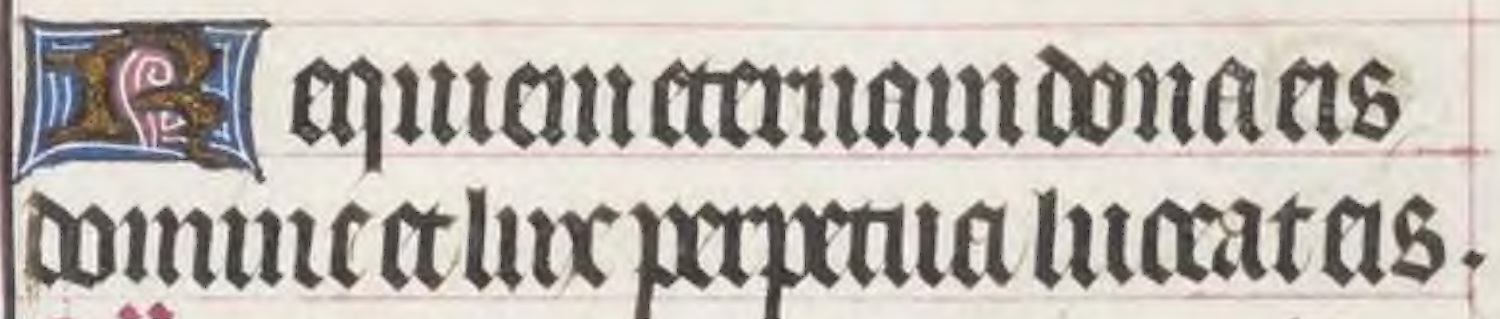 Requiem eternam dona eis
domine et lux perpetua luceat eis.